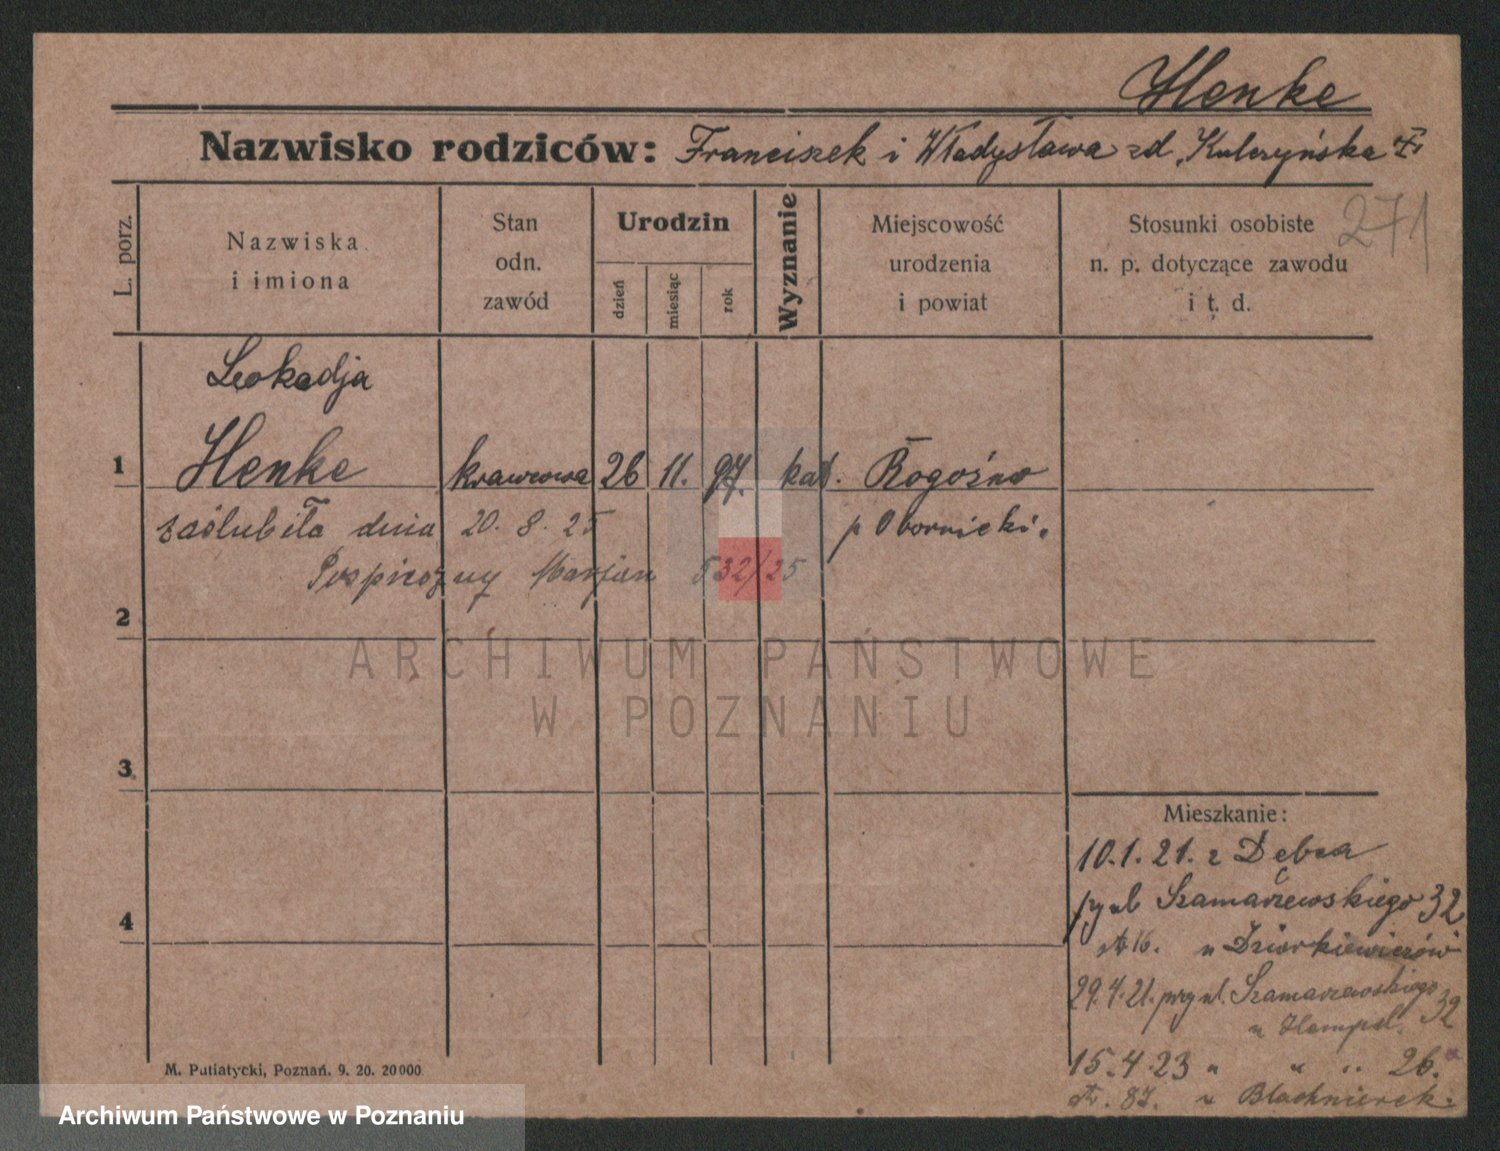 Henke
Nazwisko rodziców: Franciszek i Władysława zd. Kulczyńska
271
L. porz.
Nazwiska
i imiona
Stan
odn.
zawód
Urodzin
dzień
miesiąc
rok
Wyznanie
Miejscowość
urodzenia
i powiat
Stosunki osobiste
n. p. dotyczące zawodu
i t. d.
Leokadja
1 Henke krawcowa 26 11. 97. kat. Rogoźno
zaślubiła dnia 20. 8. 25 p Obornicki.
Pospieszny Marjan 532/25
2
ARCHIWUM PAŃSTWOWE
W POZNANIU
3
4
Mieszkanie:
10.1.21. z Dębca
Szamarzewskiego 32
16. u
29.4.21. przy ul. Szamarzewskiego 32
u
15.4.23 " " " 26.
87. u
M. Putiatycki, Poznań. 9. 20. 20000
Archiwum Państwowe w Poznaniu